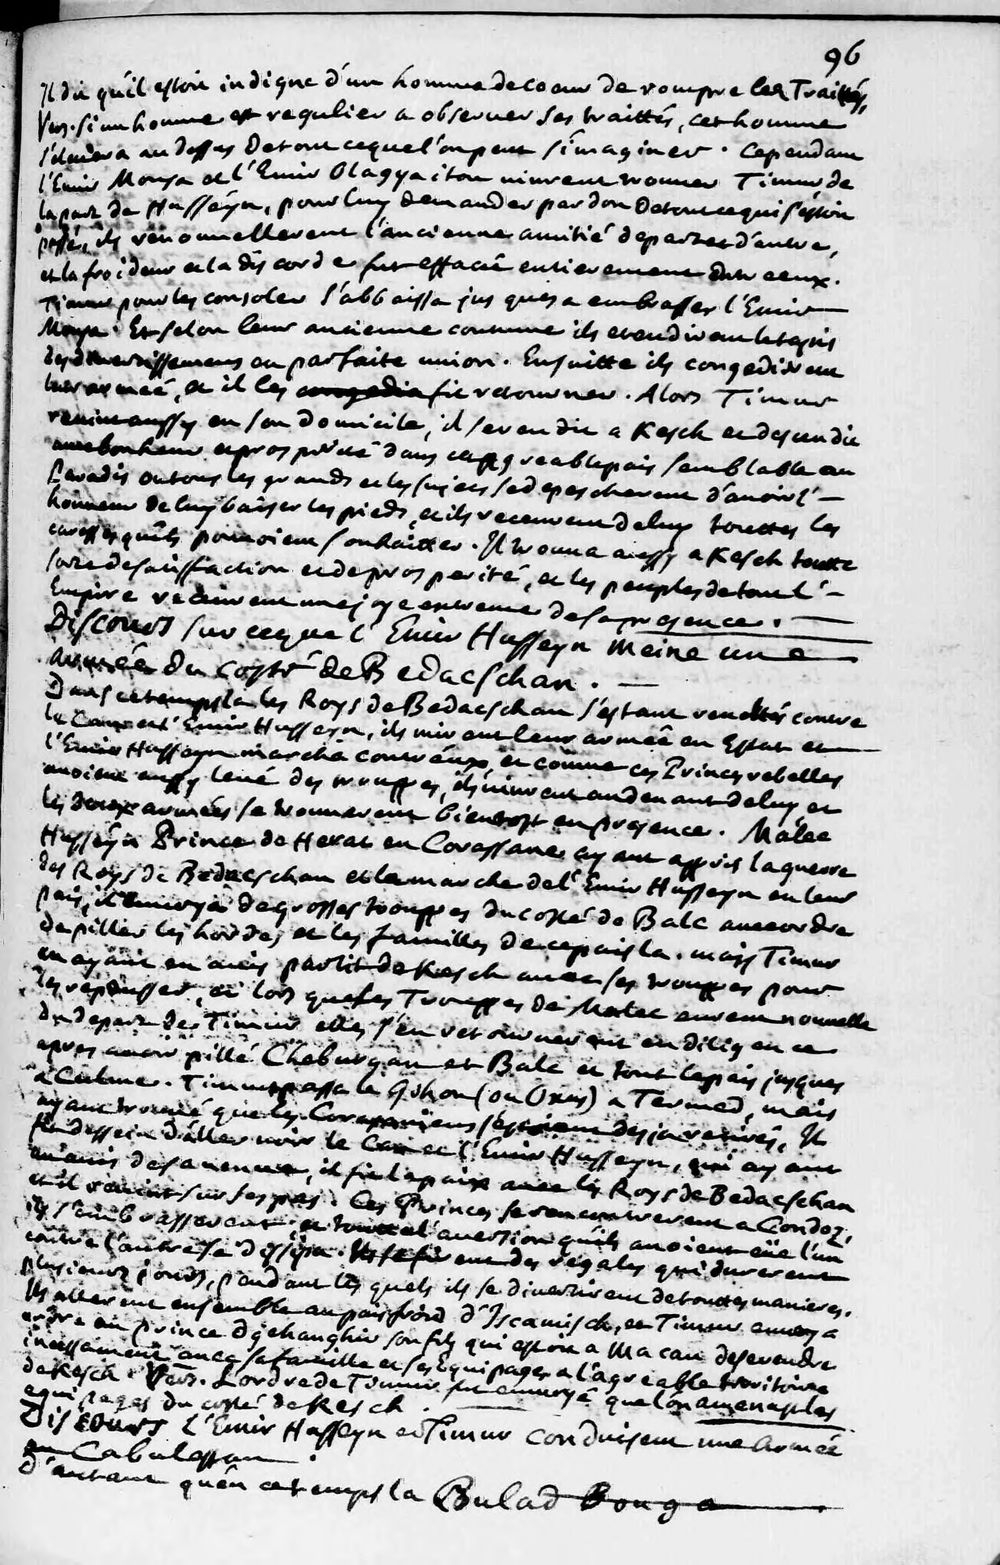 96
Il dit qu'il estoit indigne d'un homme de coeur de rompre les Traittés,
Vers. si un homme est regulier a observer ses traittés, cet homme
s'elevera au dessus de tout ce que l'on peut s'imaginer. Cependant
l'Emir Mouya et l'Emir Olagyaitou vinrent trouver Timur de
la part de Husseyn, pour luy demander pardon de tout ce qui s'estoit
passé, ils renouvellerent l'ancienne amitié de part et d'autre,
et la froideur et la discorde fut effacée entierement entre eux.
Timur pour les consoler s'abbaissa jusques a embrasser l'Emir
Mouya. Et selon leur ancienne coutume ils etendirent le tapis
des divertissemens en parfaite union. Ensuitte ils congedierent
leur armée, et il les congedia fit retourner. Alors Timur
revint aussy en son domicile, il se rendit a Kesch et descendit
avec bonheur et prosperité dans cet agreable pais semblable au
Paradis ou tous les grands et les sujets se depescherent d'avoir l'
honneur de luy baiser les pieds, et ils receurent de luy touttes les
caresses qu'ils pouvoient souhaitter. Il trouva aussy a Kesch toutte
sorte de satisfaction et de prosperité, et les peuples de tout l'
Empire receurent une joye extreme de sa presence.
Discours sur ce que l'Emir Husseyn meine une
armée du costé de Bedacschan.
Dans ce temps la les Roys de Bedacschan s'estant revoltés contre
le Can et l'Emir Husseyn, ils mirent leur armée en Estat et
l'Emir Husseyn marcha contr'eux, et comme ces Princes rebelles
avoient aussy levé des trouppes, ils vinrent au devant de luy et
les deux armées se trouverent bientost en presence. Malec
Husseyn Prince de Herat en Corassane ayant appris la guerre
des Roys de Bedacschan et la marche de l'Emir Husseyn en leur
pais, il envoya de grosses trouppes du costé de Balc avec ordre
de piller les hordes et les familles de ce pais la. mais Timur
en ayant eu avis partit de Kesch avec ses trouppes pour
les repousser, et lors que les Trouppes de Malec eurent nouvelle
du depart de Timur elles s'en retournerent en diligence
apres avoir pillé Cheburgan et Balc et tout le pais jusques
a Culme. Timur passa le Gihon (ou Oxus) a Termed, mais
ayant trouvé que les Corassaniens s'estoient desja retirés, Il
fit dessein d'aller voir le Can et l'Emir Husseyn, qui ayant
eu avis de sa venue, il fit la paix avec les Roys de Bedacschan
et il revint sur ses pas. Ces Princes se rencontrerent a Condoz,
ils s'embrasserent, et toutte l'aversion qu'ils avoient eüe l'un
contre l'autre se dissipa. Ils se firent des regales qui durerent
plusieurs jours, pendant les quels ils se divertirent de touttes manieres.
Ils allerent ensemble au pais froid d'Iscamisch, et Timur envoya
ordre au prince Dgehanghir son fils qui estoit a Macan de se rendre
incessament avec sa famille et ses Equipages a l'agreable territoire
de Kesch. Vers. L'ordre de Timur fut envoyé que l'on amenast les
equipages du costé de Kesch.
Discours L'Emir Husseyn et Timur conduisent une armée
en Cabulestan.
D'autant qu'en ce temps la Bulad Bouga